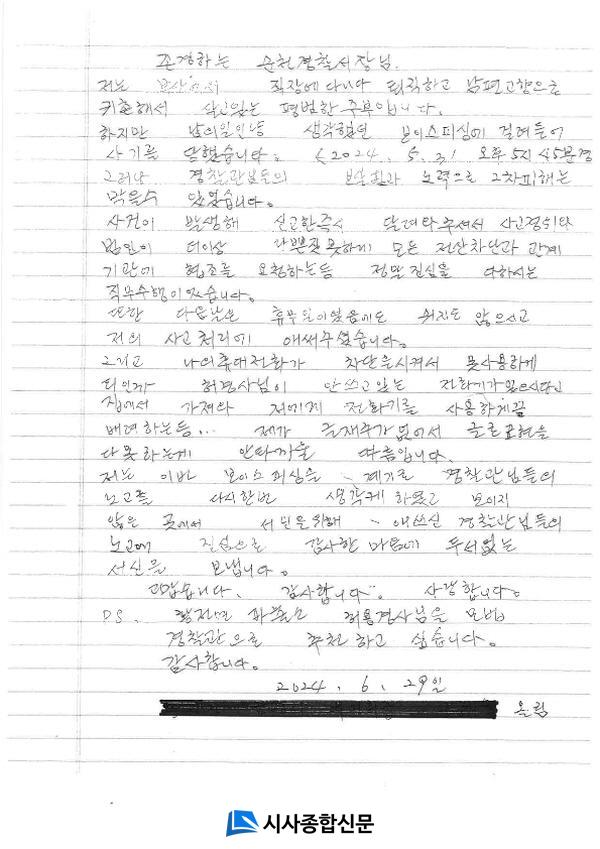 존경하는 순천경찰서장님.
저는 부산에서 직장에 다니다 퇴직하고 남편고향으로
귀촌해서 살고있는 평범한 주부입니다.
하지만 남의일인냥 생각했던 보이스피싱에 걸려들어
사기를 당했습니다. (2024. 5. 31 오후 5시 45분경
그러나 경찰관님들의 보살핌과 노력으로 2차피해는
막을수 있었습니다.
사건이 발생해 신고한즉시 달려와주셔서 사고경위와
범인이 더이상 나쁜짓 못하게 모든 전산차단과 관계
기관에 협조를 요청하는등 정말 진심을 다하시는
직무수행이었습니다.
또한 다음날은 휴무일이였음에도 쉬지도 않으시고
저의 사고처리에 애써주셨습니다.
그리고 나의휴대전화가 차단을시켜서 못사용하게
되인까 허경사님이 안쓰고있는 전화기가있으시다고
집에서 가져와 저에게 전화기를 사용하게끔
배려하는등... 제가 글재주가없어서 글로표현을
다못하는게 안타까울 따름입니다.
저는 이번 보이스피싱을 계기로 경찰관님들의
노고를 다시한번 생각케 하였고 보이지
않은 곳에서 서민을위해 애쓰신 경찰관님들의
노고에 진심으로 감사한 마음에 두서없는
서신을 보냅니다.
고맙습니다. 감사합니다. 사랑합니다.
PS. 황전면 파출소 허용경사님을 모범
경찰관으로 추천하고 싶습니다.
감사합니다.
2024. 6. 29일
올림
시사종합신문